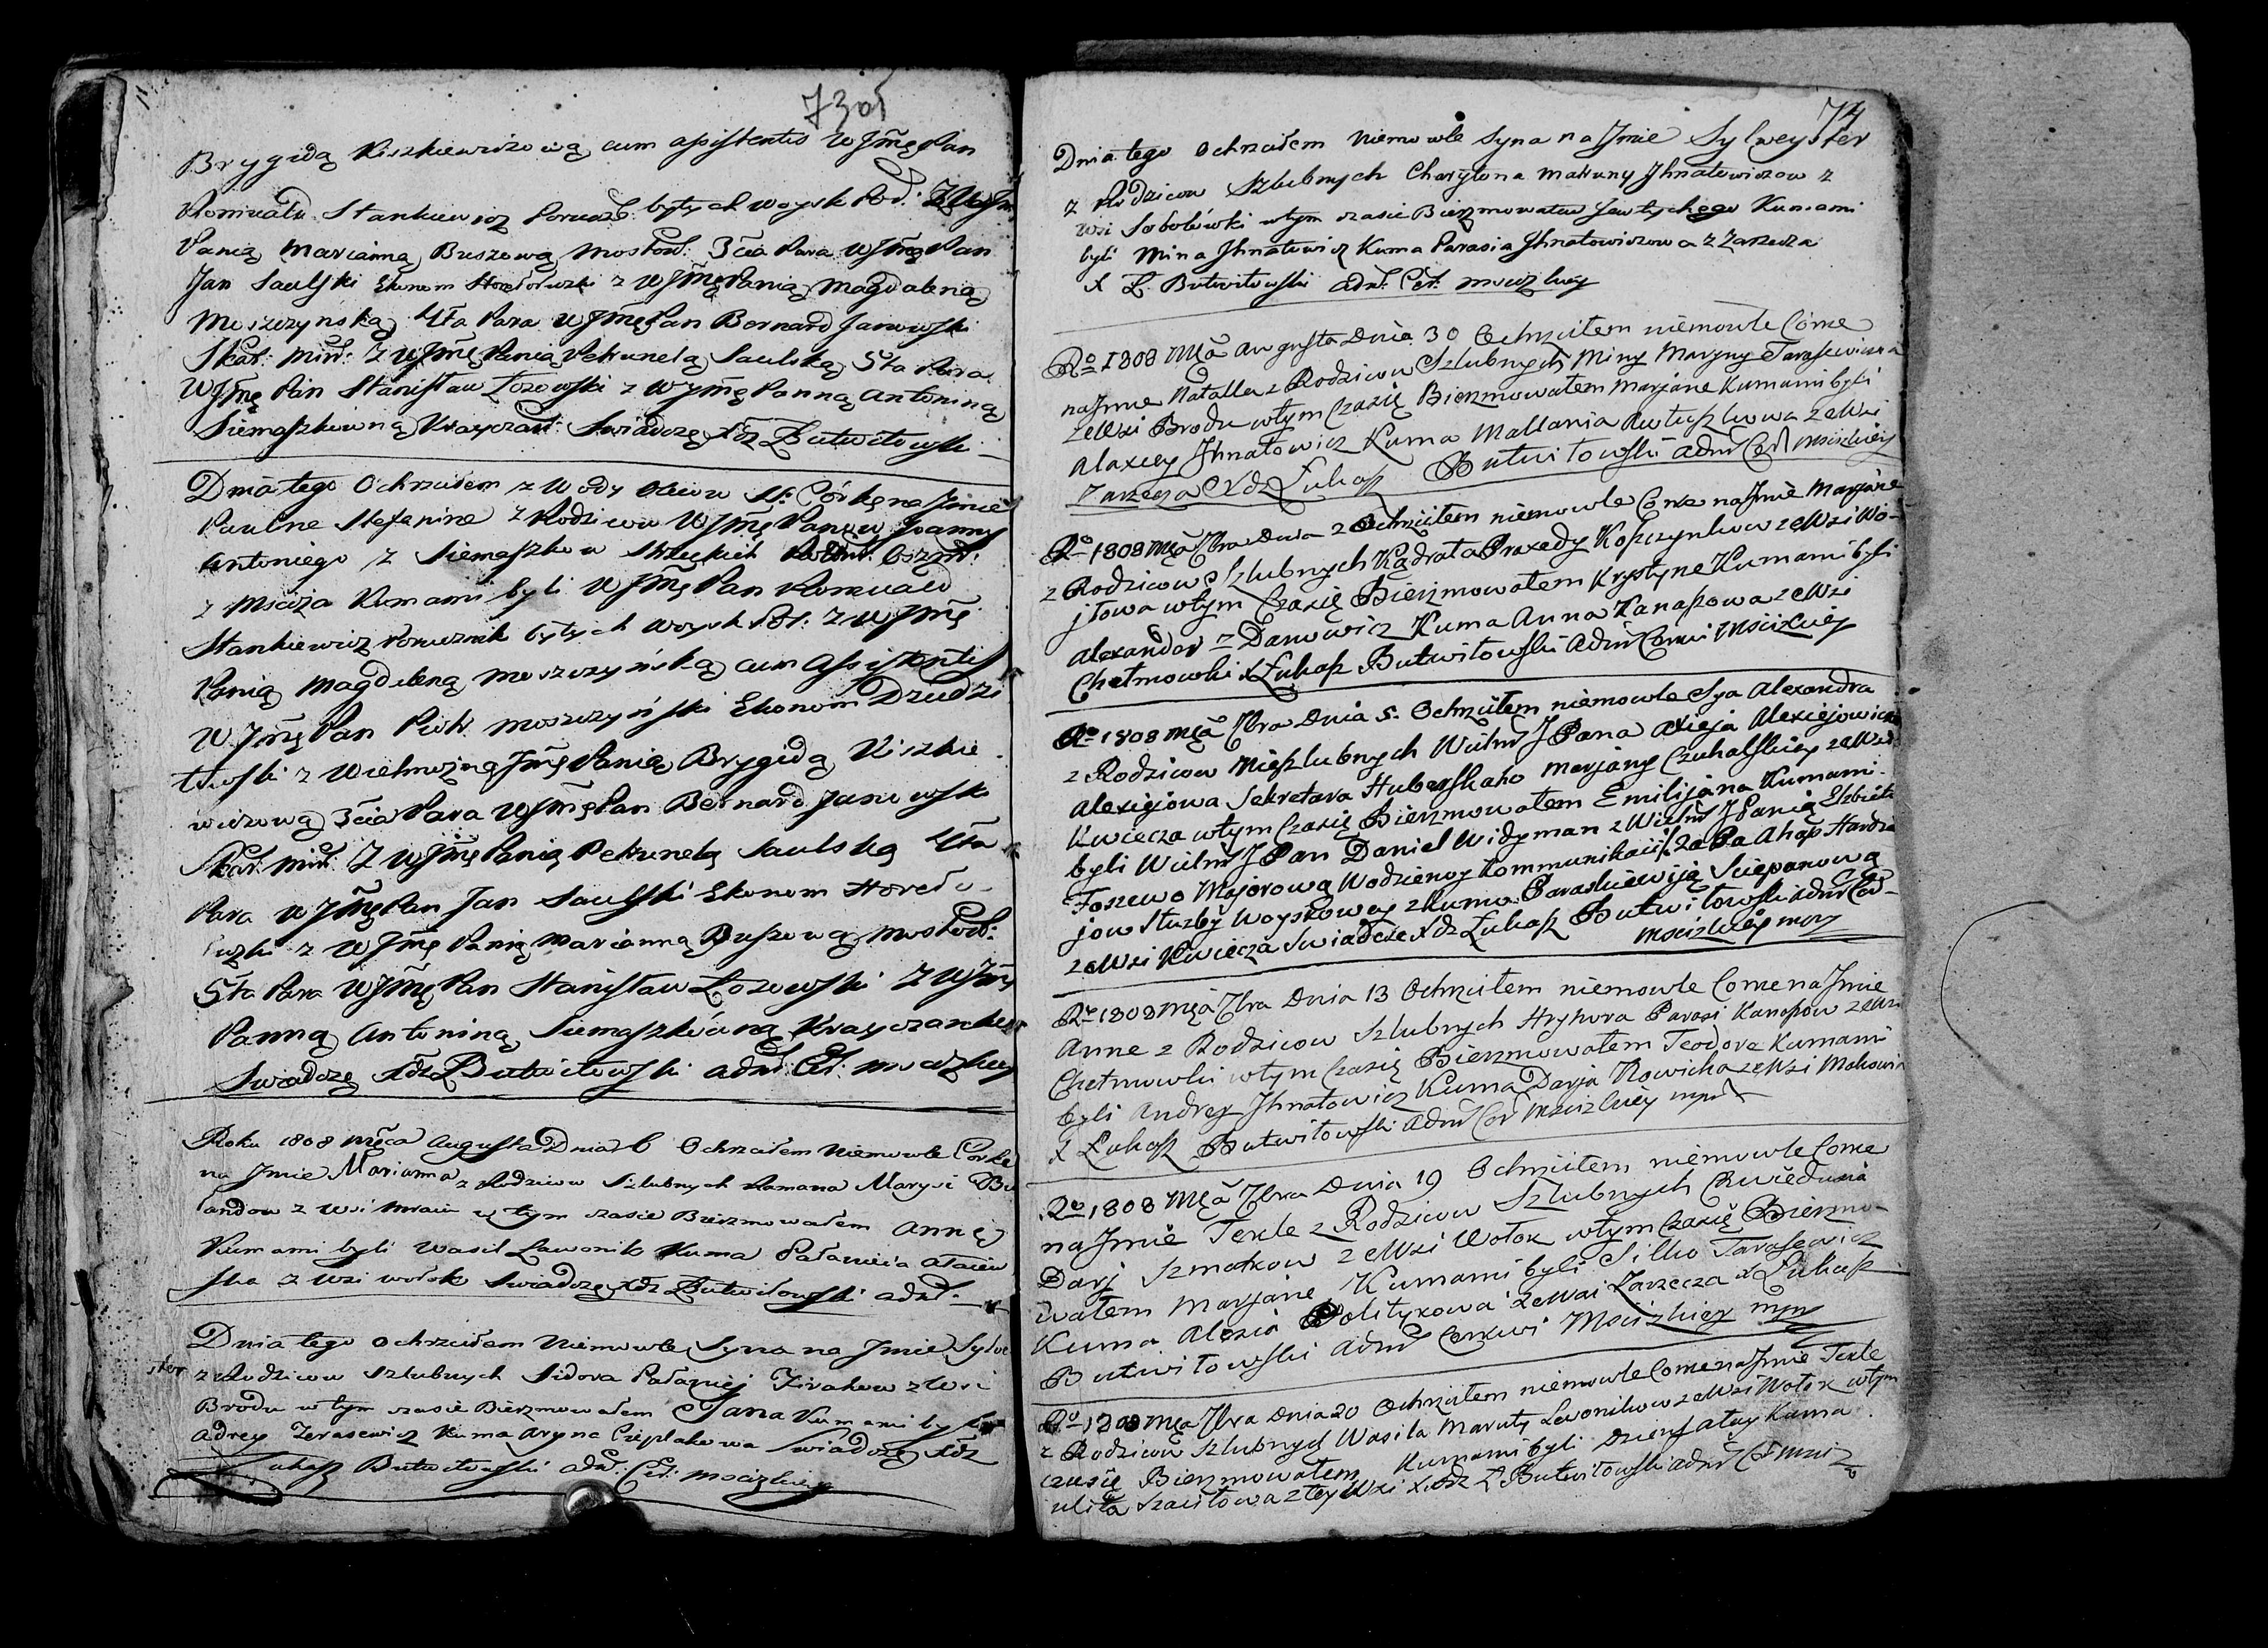 73 об
Brygidą Kiszkiewiczową cum assistentis WJmę Pan
Romuald Stankiewicz Porucz: byłych woysk Pol: Z WJm
Panią Marianną Buszową mostow: 3cia Para WJmę Pan
Jan Saulski Ekonom z WJmę Panią Magdaleną
Moszczyńską 4ta Para WJmę Pan Bernard Janowski
Skar: Min: Z WJmę Panią Petrunelą Saulską 5ta Para
WJmę Pan Stanisław Łozowski z WJmę Panną Antoniną
Siemaszkówną Krayczan: Swiadczę Xdz Butwiłowski
Dnia tego Ochrzciłem z Wody Olew St: Córkę na Jmie
Paulne Stefanine z Rodzicow WJmę Panow Joanny
Antoniego z Siemaszkow
z Msciża Kumami byli WJmę Pan Romuald
Stankiewicz Porucznik byłych woysk Pol: z WJmę
Panią Magdaleną Moszczyńską cum assistentis
WJmę Pan Piotr Moszczyński Ekonom Dziedzi
łowski z Wielmożną Jmę Panią Brygidą Kiszkie
wiczową 3cia Para WJmę Pan Bernard Janowski
Skar: Min: Z WJmę Panią Petrunelą Saulską 4ta
Para WJmę Pan Jan Saulski Ekonom Horodo
z WJmę Panią Marianną Buszową mostow:
5ta Para WJmę Pan Stanisław Łozowski Z WJmę
Panną Antoniną Siemaszkówną Krayczanką
Swiadczę Xdz Butwiłowski adm: Cer: Mscizkiey
Roku 1808 Męca Augusta Dnia 6 Ochrzciłem Niemowle Córke
na Jmie Marianna z Rodzicow Szlubnych Ramana Maryi
z Wsi w tym czasie Bierzmowałem Annę
Kumami byli Wasil Lawonik Kuma Pałanieia
z Wsi Wołok Swiadczę Xdz Butwiłowski adm:
Dnia tego Ochrzciłem Niemowle Syna na Jmie Sylwe
ster z Rodzicow Szlubnych Sidora Pałaniej z Wsi
Brodu w tym czasie Bierzmowałem Jana Kumami byli
Adrey Terasewicz Kuma Aryna Czeplakowa Swiadczę Xdz
Łukasz Butwiłowski adm: Cer: Mscizkiey
74
Dnia tego Ochrzciłem Niemowle Syna na Jmie Sylweyster
z Rodzicow Szlubnych Charytona Matruny Jhnatowiczow z
Wsi Sobolówki w tym czasie Bierzmowałem Kumami
byli Mina Jhnatowicz Kuma Parasia Jhnatowiczowa z Zarzecza
X Ł Butwiłowski adm: Cer: Mscizkiey
Ro 1808 Męca Augusta Dnia 30 Ochrzciłem niemowle Córne
na Jmie Natalla z Rodzicow Szlubnych Miny Maryny Tarasewiczow
ze Wsi Brodu w tym czasię Bierzmowałem Marjane Kumami byli
Alaxiey Jhnatowicz Kuma Mallania ze Wsi
Zarzecza Xdz Łukasz Butwiłowski adm Cer Mscizkiey
Ro 1808 Męca 7bra Dnia 2 Ochrzciłem niemowle Corne na Jmie Marjane
z Rodzicow Szlubnych Kądrata Praxedy Kopczynkow ze Wsi Wo-
jłowa w tym czasię Bierzmowałem Krystyne Kumami byli
Alexander Danowicz Kuma Anna Kanaszowa ze Wsi
Chełmowki X Łukasz Butwiłowski adm Cerkwi Mscizkiey
Ro 1808 Męca 7bra Dnia 5. Ochrzciłem niemowle Sya Alexandra
z Rodzicow Nieszlubnych Wielm JPana Alieja Alexiejowicza
Alexiejowa Sekretara Huberskaho Marjany Czuhalskiey ze Wsi
Kwiecza w tym czasię Bierzmowałem Emilijana Kumami
byli Wielm JPan Daniel Widyman z Wielm JPanią Elzbieto
Foszewo Majorową Wodzienoy Kommunikacii 2a Pa Ahap Hardzie
jow Słuzby Woyskowey z Kumo Paraskiewiją Sciepanową
ze Wsi Kwiecza Swiadcze Xdz Łukasz Butwiłowski adm Cer
Mscizkiey mpp
Ro 1808 Męca 7bra Dnia 13 Ochrzciłem niemowle Corne na Jmie
Anne z Rodzicow Szlubnych Hryhora Parasi Kanaszow ze Wsi
Chełmowki w tym czasię Bierzmowałem Teodora Kumami
byli Andrey Jhnatowicz Kuma Darja Nowicka ze Wsi Mohowia
X Łukasz Butwiłowski adm Cer Mscizkiey mpp
Ro 1808 Męca 7bra Dnia 19 Ochrzciłem niemowle Corne
na Jmie Tekle z Rodzicow Szlubnych
Darj Szmatkow ze Wsi Wołok w tym czasię Bierzmo-
wałem Marjane Kumami byli Silko Tarasewicz
Kuma Alexia Politykowa ze Wsi Zarzecza X Łukasz
Butwiłowski adm Cerkwi Mscizkiey mpp
Ro 1808 Męca 7bra Dnia 20 Ochrzciłem niemowle Corne na Jmie Tekle
z Rodzicow Szlubnych Wasila Maruty Lewonikow ze Wsi Wołok w tym
czasię Bierzmowałem Kumami byli Kuma
Ulita Szaciłowa z tey Wsi Xdz Ł Butwiłowski adm Cer Msciz